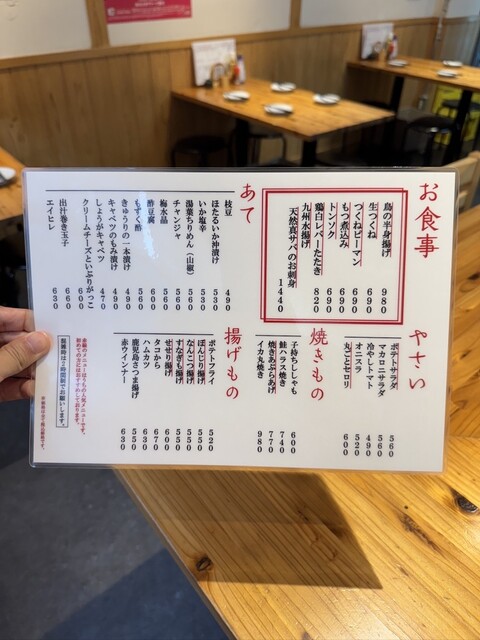 お食事
鳥の半身揚げ 980
生つくね 690
つくねピーマン 690
もつ煮込み 690
トンソク 690
鶏白レバーたたき 820
九州水揚げ
天然真サバのお刺身 1440
あて
枝豆 490
ほたるいか沖漬け 530
いか塩辛 530
湯葉ちりめん（山椒） 560
チャンジャ 560
梅水晶 560
酢豆腐 560
もずく酢
きゅうりの一本漬け 490
キャベツのもみ漬け 490
しょうがキャベツ 470
クリームチーズといぶりがっこ
出汁巻き玉子
エイヒレ 630
やさい
ポテトサラダ 560
マカロニサラダ 560
冷やしトマト 490
オニスラ 520
丸ごとセロリ 600
焼きもの
子持ちししゃも 600
鮭ハラス焼き 740
焼きあぶらあげ 770
イカ丸焼き 980
揚げもの
ポテトフライ 520
ぼんじり揚げ 550
なんこつ揚げ 550
すなぎも揚げ 550
せせり揚げ 600
タコから 670
ハムカツ 630
鹿児島さつま揚げ 550
赤ウインナー 630
赤線のメニューはうちの人気メニューです。
初めての方にはおすすめしております。
混雑時は2時間制でお願いします。